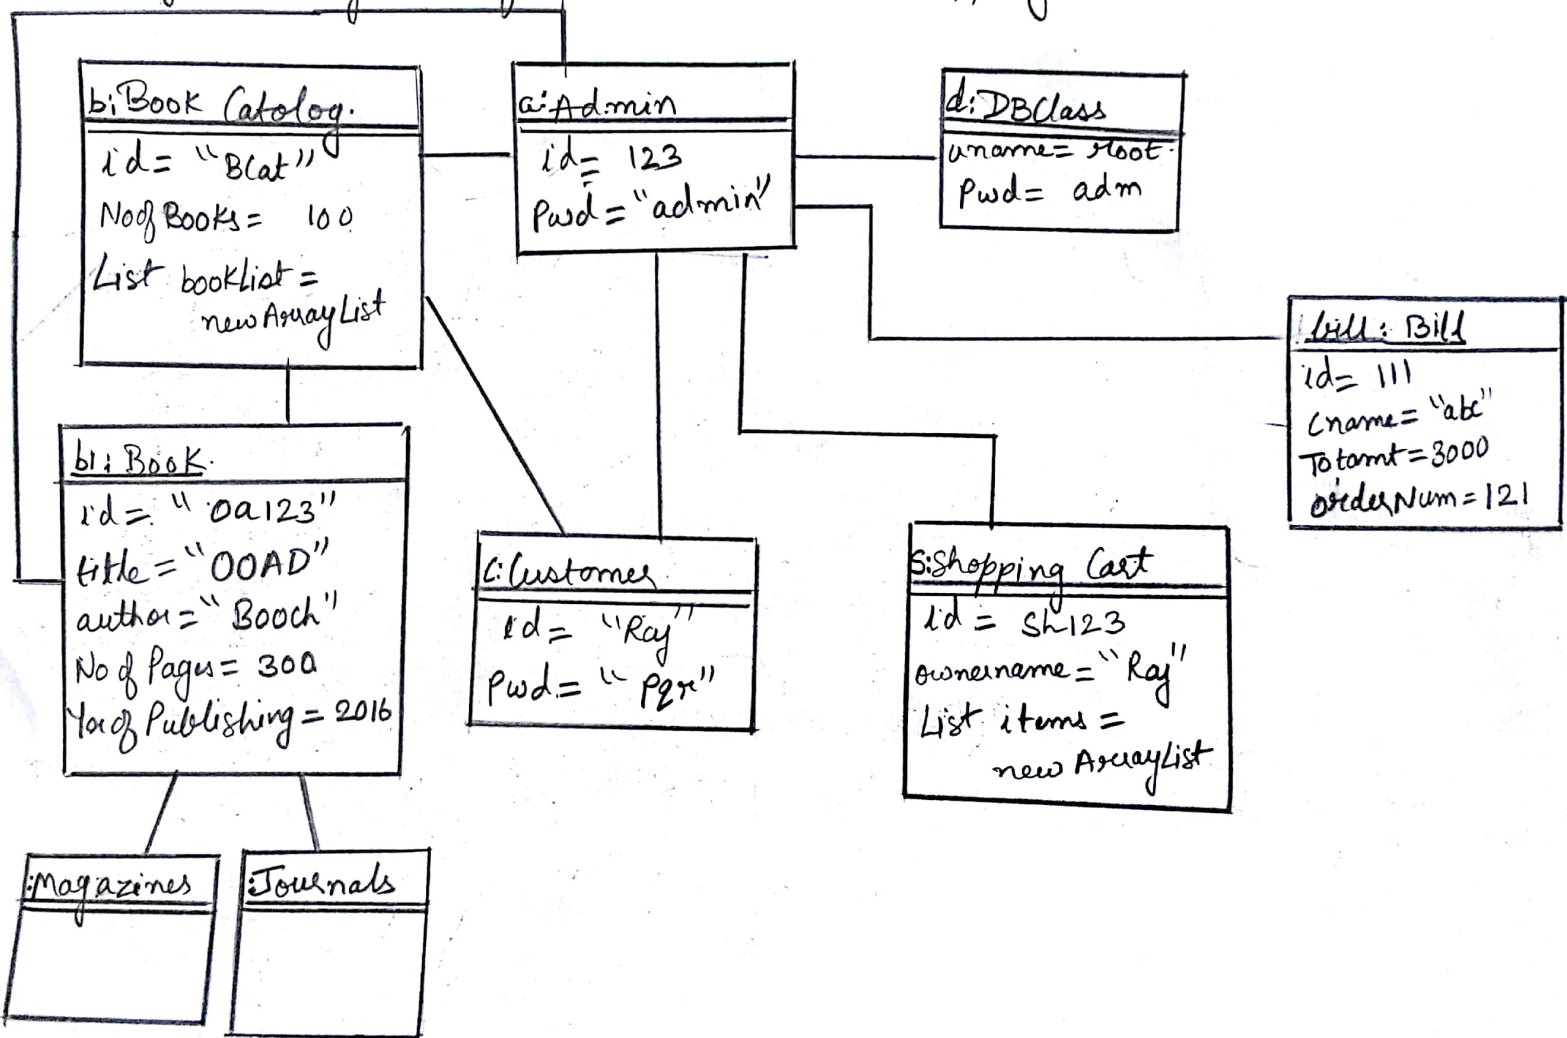 b: Book Catolog.
id = "BCat"
No of Books = 100
List booklist =
new ArrayList
a: Admin
id = 123
Pwd = "admin"
d: DBClass
uname = root
Pwd = adm
bill: Bill
id = 111
Cname = "abc"
Totamt = 3000
orderNum = 121
b1: Book.
id = "oa123"
title = "OOAD"
author = "Booch"
No of Pages = 300
Yr of Publishing = 2016
c: Customer
id = "Raj"
Pwd = "Pqr"
s: Shopping Cart
id = Sh123
ownername = "Raj"
List items =
new ArrayList
:Magazines
:Journals